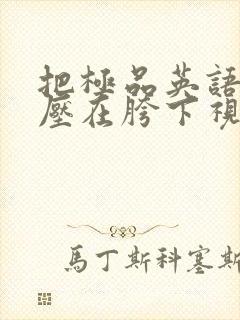 把極品英語
壓在胯下視
馬丁斯科塞斯